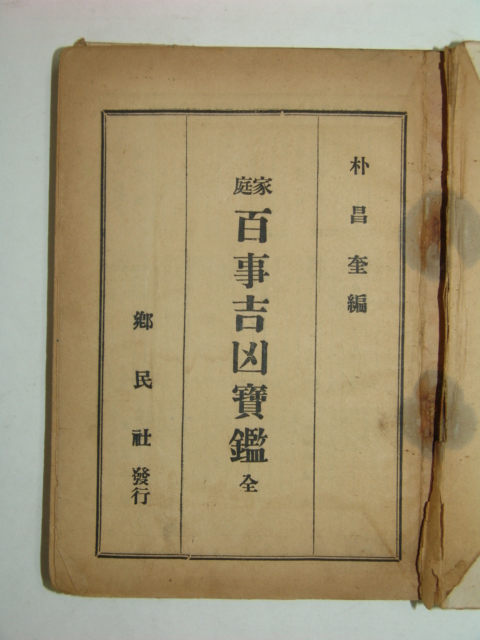 朴昌奎編
家庭
百事吉凶寶鑑 全
鄕民社 發行